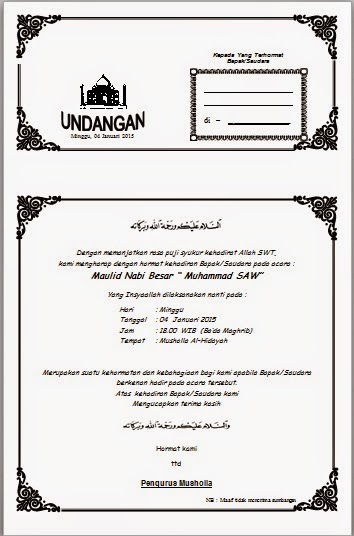 UNDANGAN
Minggu, 04 Januari 2015
Kepada Yang Terhormat
Bapak/Saudara
di –
السلام عليكم ورحمة الله وبركاته
Dengan memanjatkan rasa puji syukur kehadirat Allah SWT,
kami mengharap dengan hormat kehadiran Bapak/Saudara pada acara :
Maulid Nabi Besar “ Muhammad SAW”
Yang Insyaallah dilaksanakan nanti pada :
Hari : Minggu
Tanggal : 04 Januari 2015
Jam : 18.00 WIB (Ba'da Maghrib)
Tempat : Musholla Al-Hidayah
Merupakan suatu kehormatan dan kebahagiaan bagi kami apabila Bapak/Saudara
berkenan hadir pada acara tersebut.
Atas kehadiran Bapak/Saudara kami
Mengucapkan terima kasih
والسلام عليكم ورحمة الله وبركاته
Hormat kami
ttd
Pengurus Musholla
NB : Maaf tidak menerima sumbangan